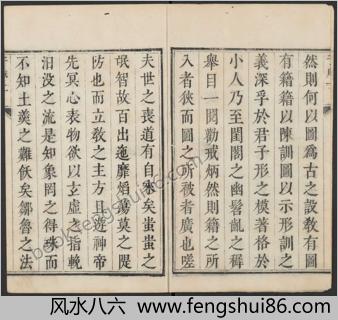 然則何以圖為古之設教有圖
有籍籍以陳訓圖以示形訓之
義深孚於君子形之模著格於
小人乃至閨閤之幽髫齔之穉
舉目一閱勸戒炳然則籍之所
入者狹而圖之所被者廣也嗟
夫世之喪道有自來矣蚩蚩之
氓智故百出迤靡熖蕩莫之隄
防也而立敎之主方且遊神帝
先冥心表物欲以玄虛之指輓
汨没之流是知象罔之得珠而
不知土羮之難飫矣鄒魯之法
book.fengshui86.com
风水八六 - www.fengshui86.com